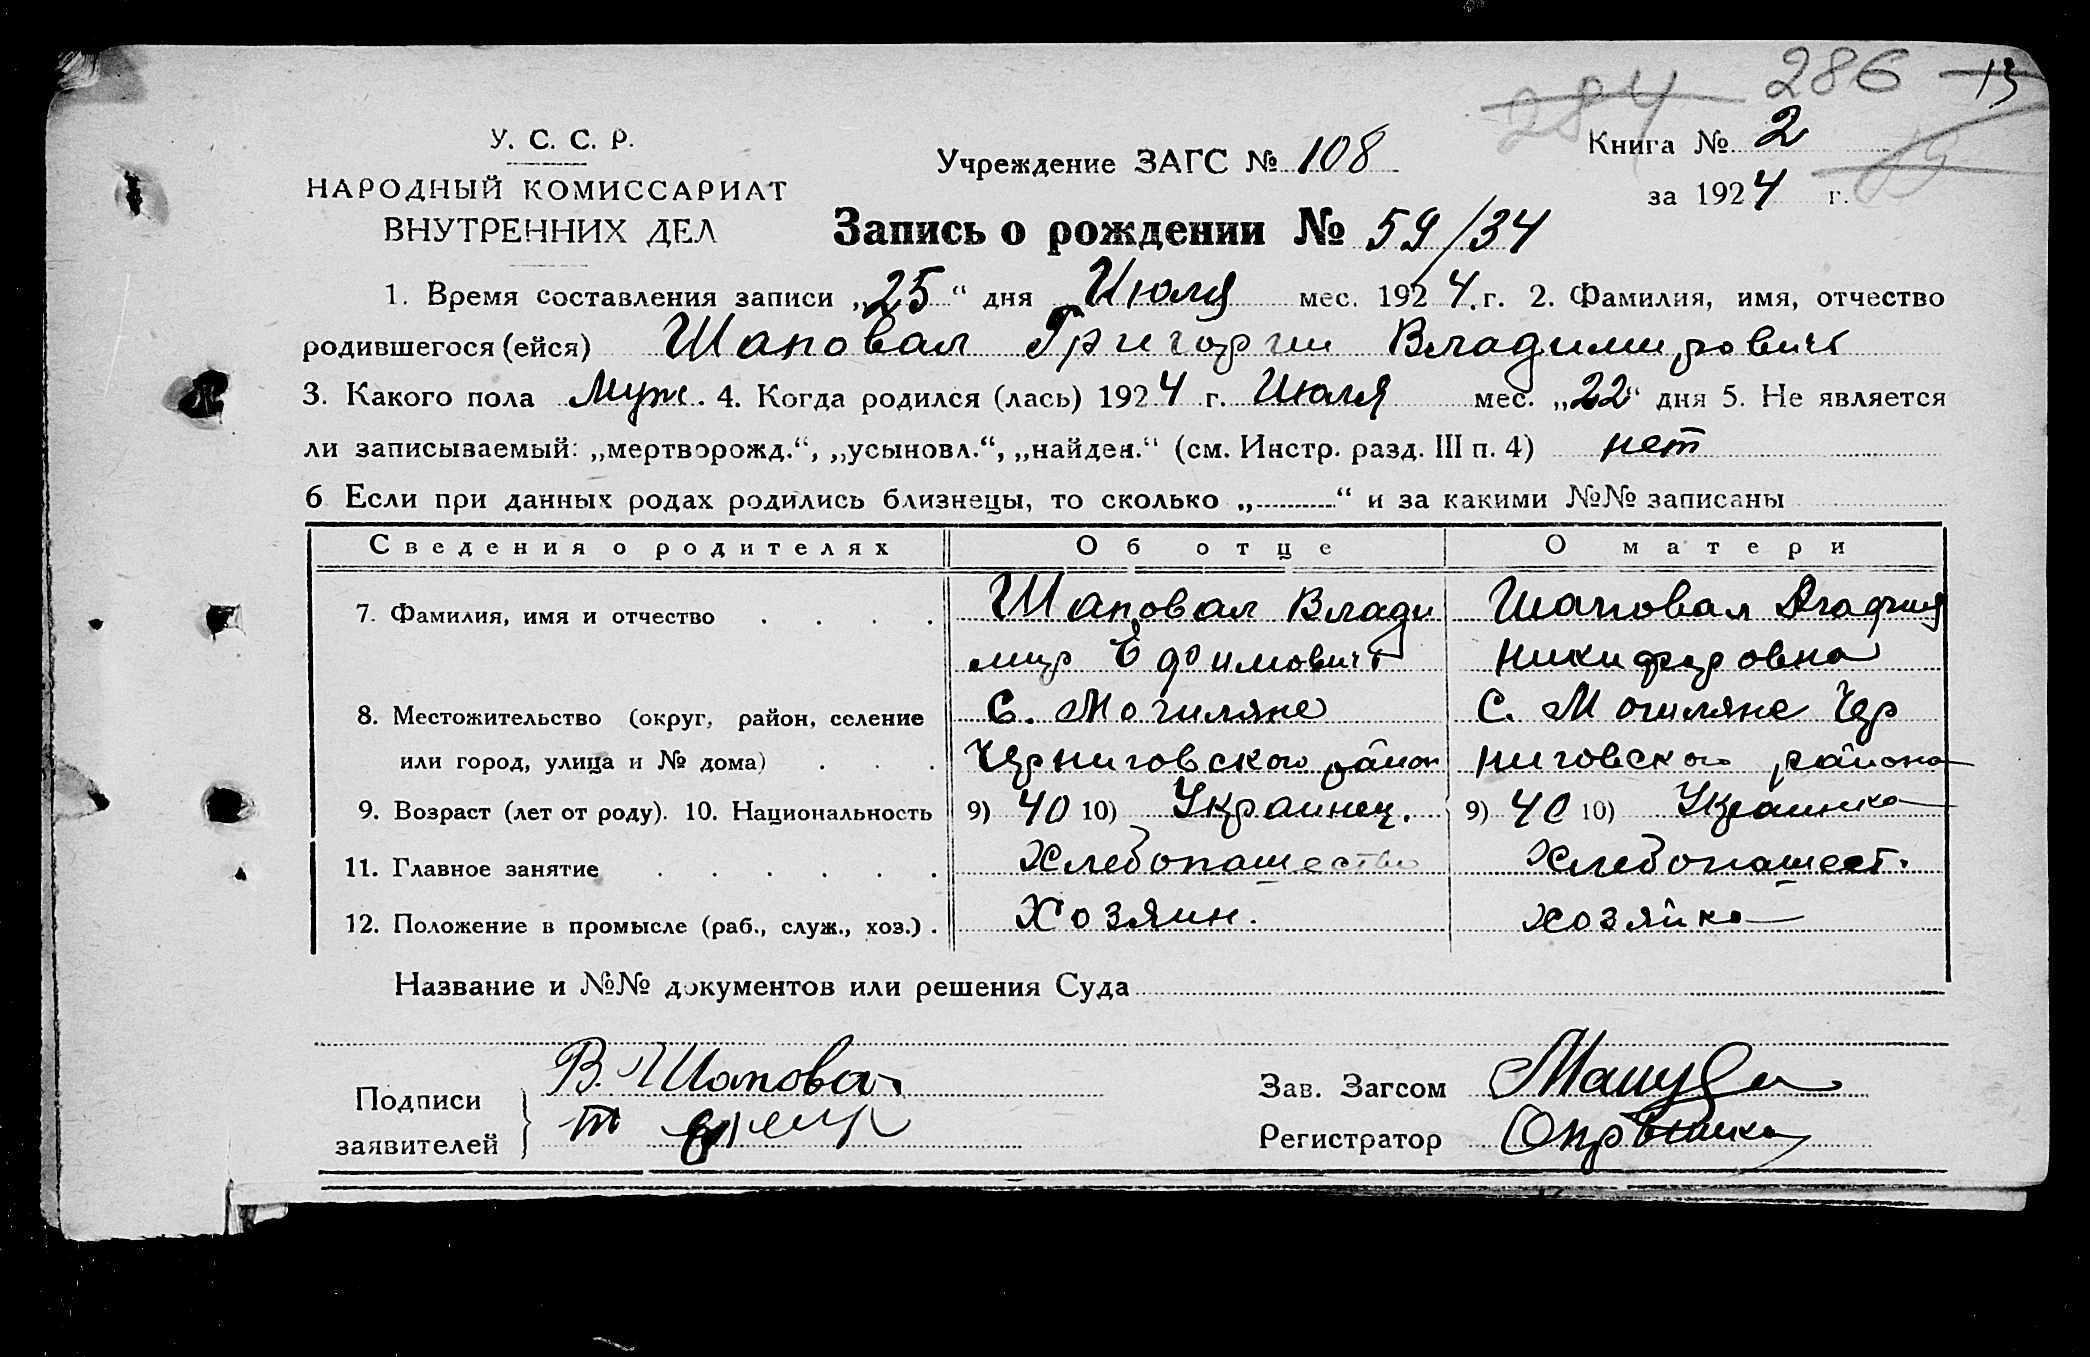 286 13
284
У. С. С. Р.
НАРОДНЫЙ КОМИССАРИАТ
ВНУТРЕННИХ ДЕЛ
Учреждение ЗАГС № 108
Книга № 2
за 1924 г.
Запись о рождении № 59/34
1. Время составления записи „25“ дня Июля мес. 1924.г. 2. Фамилия, имя, отчество
родившегося (ейся) Шаповал Григории Владимирович
3. Какого пола Муж. 4. Когда родился (лась) 1924 г. Июля мес. „22“ дня 5. Не является
ли записываемый: „мертворожд.“, „усыновл.“, „найден.“ (см. Инстр. разд. III п. 4) нет
6 Если при данных родах родились близнецы, то сколько „..........“ и за какими №№ записаны
Сведения о родителях Об отце О матери
7. Фамилия, имя и отчество . . . . Шаповал Влади Шаповал Агафия
мир Ефимович Никифоровна
8. Местожительство (округ, район, селение С. Могиляне С. Могиляне Чер
или город, улица и № дома) . . . Черниговского район ниговского района
9. Возраст (лет от роду). 10. Национальность 9) 40 10) Украинец. 9) 40 10) Украинка
11. Главное занятие . . . . . . Хлебопашество Хлебопашест.
12. Положение в промысле (раб., служ., хоз.) . Хозяин. хозяйка
Название и №№ документов или решения Суда
Подписи
заявителей
В. Шаповал
Зав. Загсом
Регистратор